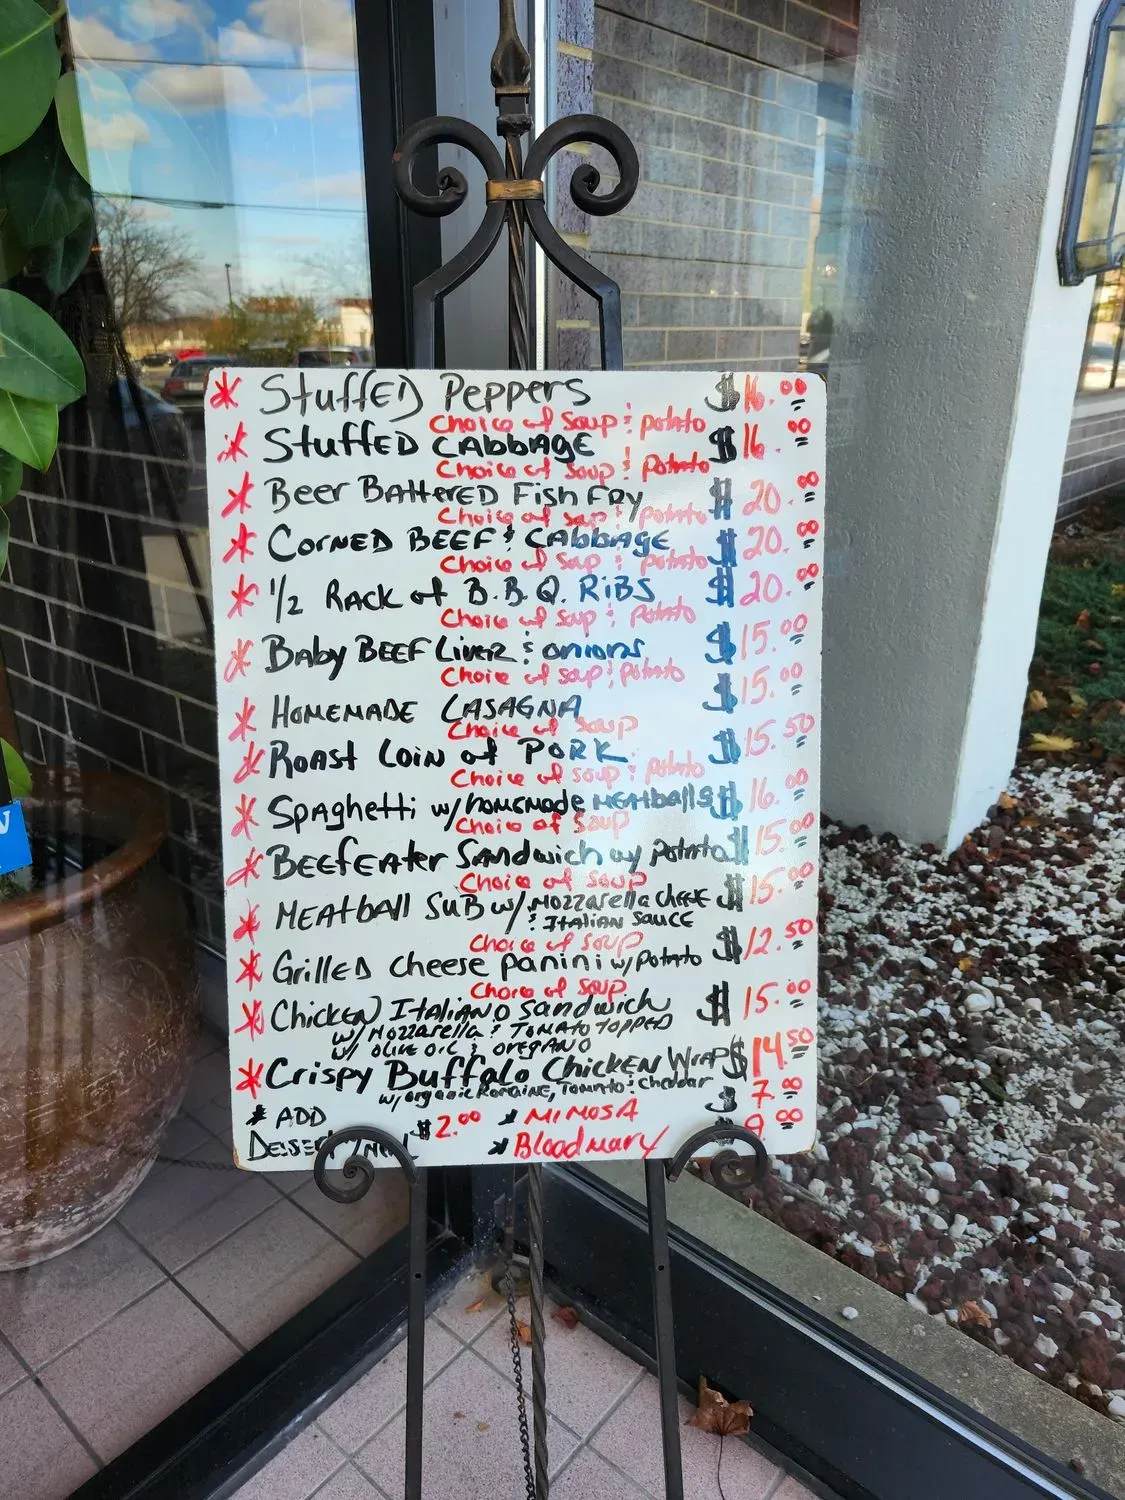 * Stuffed Peppers $16.00
Choice of Soup & potato
* Stuffed Cabbage $16.00
Choice of Soup & potato
* Beer Battered Fish Fry $20.00
Choice of soup & potato
* Corned Beef & Cabbage $20.00
Choice of Soup & potato
* 1/2 Rack of B.B.Q. Ribs $20.00
Choice of Soup & potato
* Baby Beef Liver & onions $15.00
Choice of soup & potato
* Homemade Lasagna $15.00
Choice of Soup
* Roast Loin of Pork $15.50
Choice of soup & potato
* Spaghetti w/homemade Meatballs $16.00
Choice of Soup
* Beefeater Sandwich w/ potato $15.00
Choice of Soup
* Meatball Sub w/ Mozzarella cheese $15.00
& Italian Sauce
Choice of Soup
* Grilled cheese panini w/potato $12.50
Choice of Soup
* Chicken Italiano Sandwich $15.00
w/ Mozzarella & Tomato topped
w/ olive oil & oregano
* Crispy Buffalo Chicken Wrap $14.50
w/organic Romaine, Tomato & Cheddar
* ADD $2.00 * Mimosa $7.00
Dessert * Bloodmary $9.00